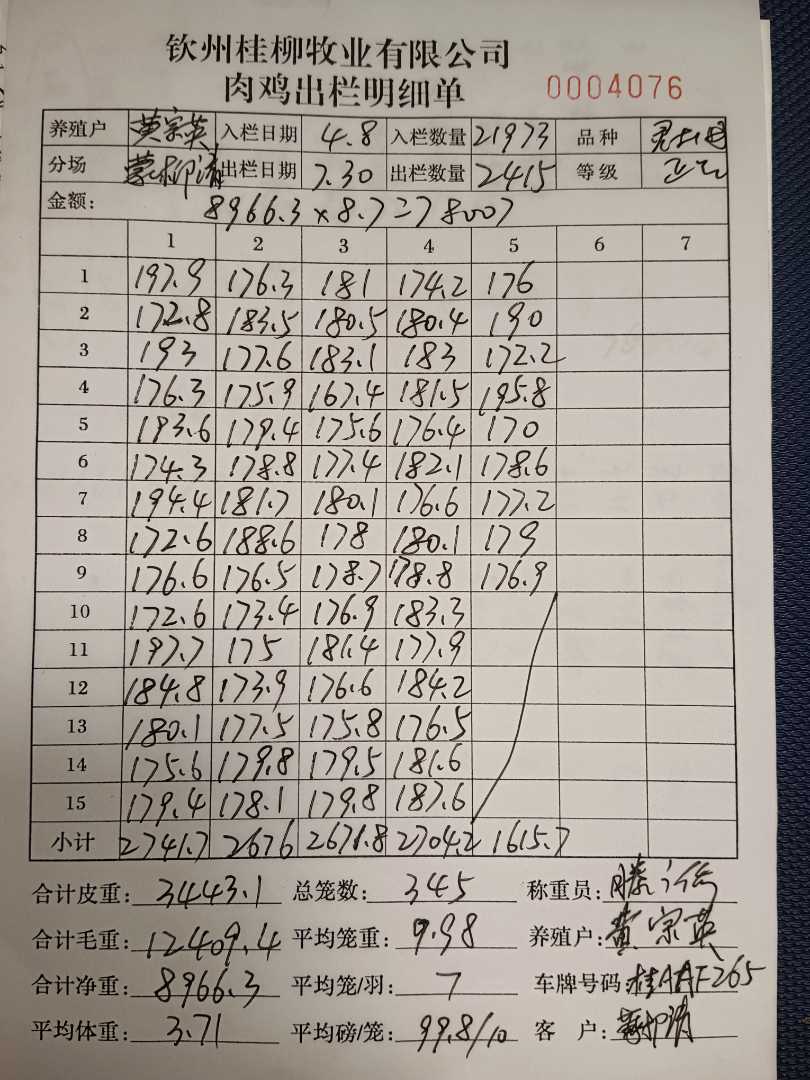 钦州桂柳牧业有限公司
肉鸡出栏明细单 0004076
养殖户 黄宗英 入栏日期 4.8 入栏数量 21973 品种
分场 出栏日期 7.30 出栏数量 2415 等级
金额: 8966.3×8.7=78007
1 2 3 4 5 6 7
1 197.9 176.3 181 174.2 176
2 172.8 183.5 180.5 180.4 190
3 193 177.6 183.1 183 172.2
4 176.3 175.9 167.4 181.5 195.8
5 193.6 179.4 175.6 176.4 170
6 174.3 178.8 177.4 182.1 178.6
7 194.4 181.7 180.1 176.6 177.2
8 172.6 188.6 178 180.1 179
9 176.6 176.5 178.7 178.8 176.9
10 172.6 173.4 176.9 183.3
11 197.7 175 181.4 177.9
12 184.8 173.9 176.6 184.2
13 180.1 177.5 175.8 176.5
14 175.6 179.8 179.5 181.6
15 179.4 178.1 179.8 187.6
小计 2741.7 2676 2671.8 2704.2 1615.7
合计皮重: 3443.1 总笼数: 345 称重员:
合计毛重: 12409.4 平均笼重: 9.98 养殖户: 黄宗英
合计净重: 8966.3 平均笼/羽: 7 车牌号码: 桂AAF265
平均体重: 3.71 平均磅/笼: 99.8/10 客 户: